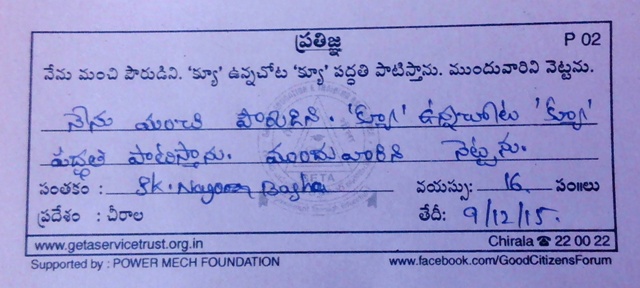 ప్రతిజ్ఞ P 02
నేను మంచి పౌరుడిని. 'క్యూ' ఉన్నచోట 'క్యూ' పద్ధతి పాటిస్తాను. ముందువారిని నెట్టను.
నేను మంచి పౌరుడిని. 'క్యూ' ఉన్నచోట 'క్యూ'
పద్ధతి పాటిస్తాను. ముందువారిని నెట్టను.
సంతకం: SK. Nagoor Basha వయస్సు: 16 సం॥లు
ప్రదేశం : చీరాల తేదీ: 9/12/15.
www.getaservicetrust.org.in Chirala ☎ 22 00 22
Supported by : POWER MECH FOUNDATION www.facebook.com/GoodCitizensForum
GETA